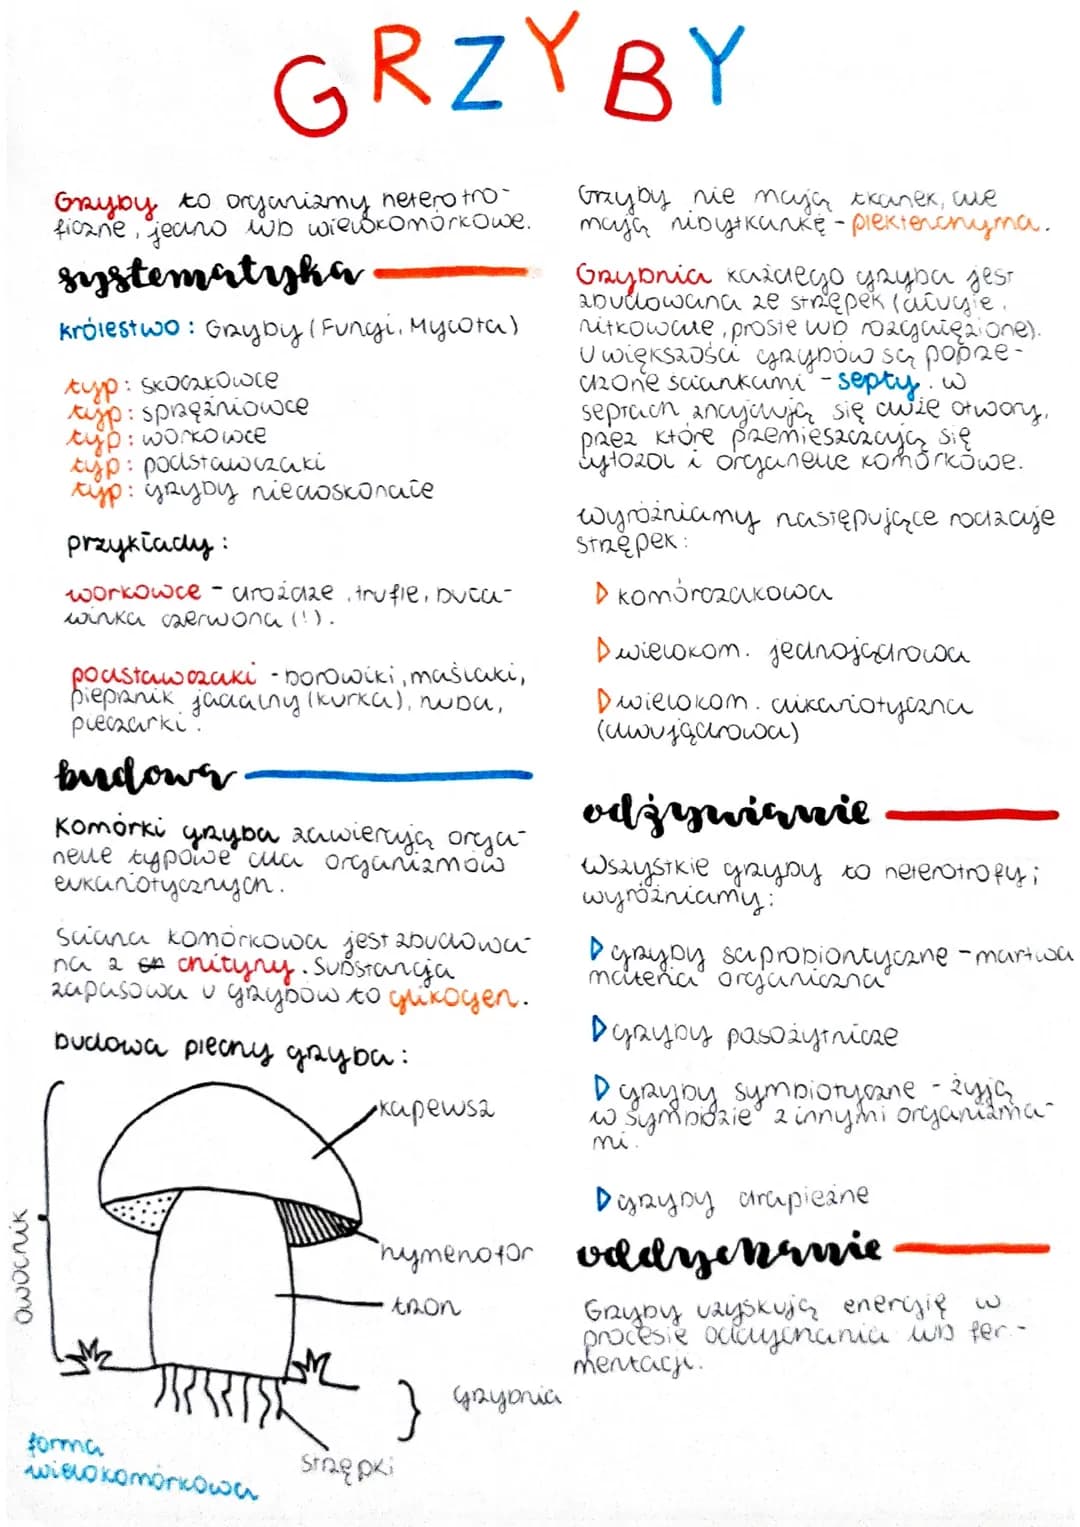 GRZYBY
Grzyby to organizmy heterotro-
ficzne, jedno lub wielokomórkowe.
systematyka
królestwo: Grzyby (Fungi, Mycota)
typ: skoczkowce
typ: sprzężniowce
typ: workowce
typ: podstawczaki
typ: grzyby niedoskonałe
przykłady:
workowce - drożdże, trufle, buła-
winka czerwona (!).
podstawczaki - borowiki, maślaki,
pieprznik jadalny (kurka), huba,
pieczarki.
budowa
Komórki grzyba zawierają orga-
nelle typowe dla organizmów
eukariotycznych.
Ściana komórkowa jest zbudowa-
na z chityny. Substancją
zapasową u grzybów to glikogen.
budowa plechy grzyba:
kapelusz
hymenofor
trzon
owocnik
grzybnia
strzępki
forma
wielokomórkowa
Grzyby nie mają tkanek, ale
mają nibytkankę - plektenchyma.
Grzybnia każdego grzyba jest
zbudowana ze strzępek (długie,
nitkowate, proste lub rozgałęzione).
U większości grzybów są poprze-
dzone ściankami - septy. W
septach znajdują się duże otwory,
przez które przemieszczają się
cytozol i organelle komórkowe.
wyróżniamy następujące rodzaje
strzępek:
komórczakowa
wielokom. jednojądrowa
wielokom. dikariotyczna
(dwujądrowa)
odżywianie
Wszystkie grzyby to heterotrofy;
wyróżniamy:
grzyby saprobiontyczne - martwa
materia organiczna
grzyby pasożytnicze
grzyby symbiotyczne - żyją
w symbiozie z innymi organizma-
mi.
grzyby drapieżne
oddychanie
Grzyby uzyskują energię w
procesie oddychania lub fer-
mentacji.